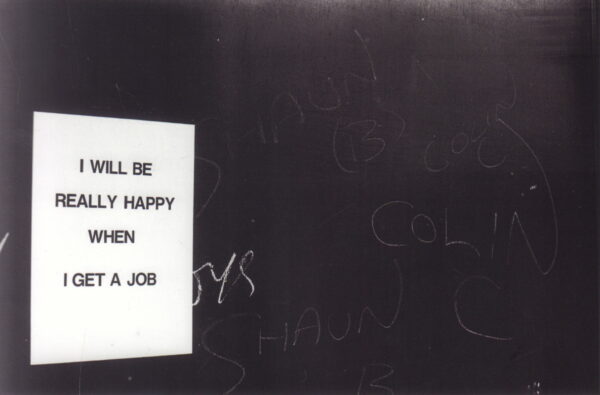 I WILL BE
REALLY HAPPY
WHEN
I GET A JOB
SHAUN
(B)
COLIN
SHAUN
C
B